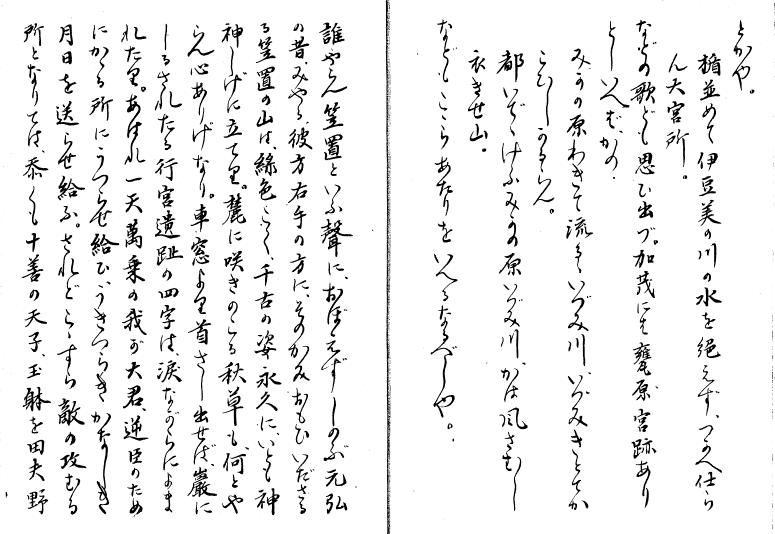 とかや。
楯並めて伊豆美の川の水を絶えず、つかへ仕ら
ん大宮所。
などの歌ども思ひ出づ。加茂には甕原宮跡あり
としいへば、かの
みかの原わきて流るゝいづみ川、いづみきとてか
こひしかるらん。
都いでゝけふみかの原いづみ川、かは風さむし
衣かせ山。
などもこゝらあたりをいへるなるべしや。
誰やらん笠置といふ聲に、おぼえずしのぶ元弘
の昔、みやる彼方右手の方に、そのかみおもひいださる
る笠置の山は、緑色こく、千古の姿永久に、いとも神
神しげに立てり。麓に咲きのこる秋草も、何とや
らん心ありげなり。車窓より首さし出せば、巖に
しるされたる行宮遺趾の四字は、涙ながらによま
れたり。あはれ一天萬乗の我が大君、逆臣のため
にかゝる所にうつらせ給ひ、うきつらきかなしき
月日を送らせ給ふ。されどこゝすら敵の攻むる
所となりては、忝くも十善の天子、玉躰を田夫野